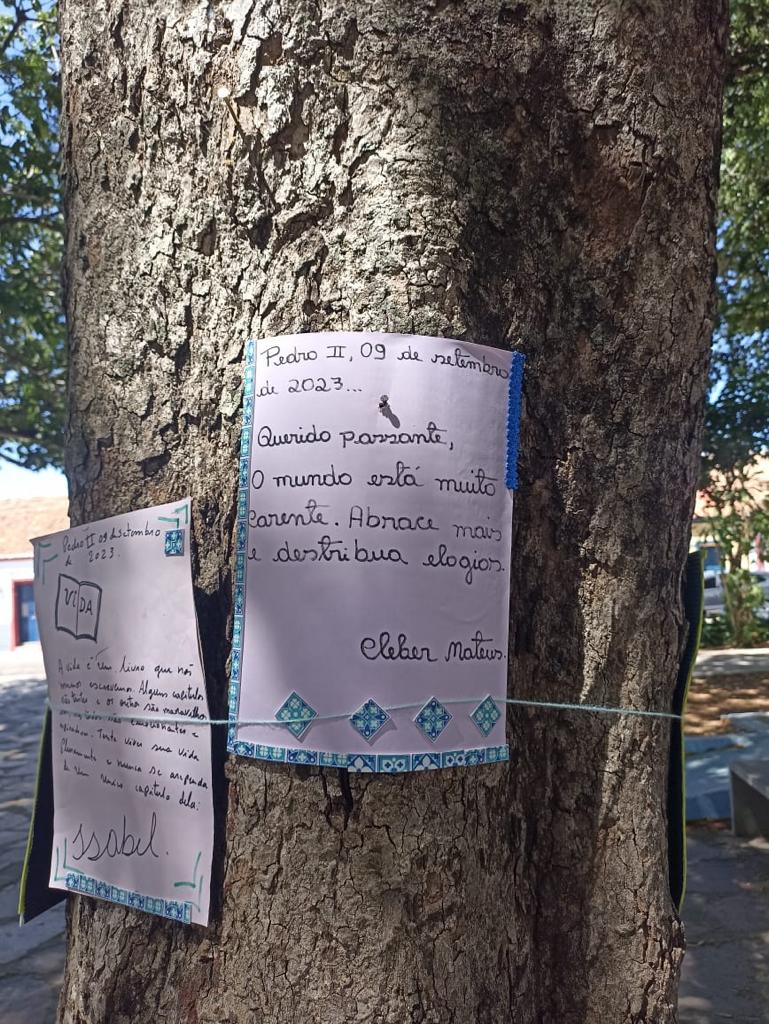 Pedro II, 09 de setembro
de 2023...
Querido passante,
O mundo está muito
carente. Abrace mais
e destribua elogios.
Cleber Mateus.
Pedro II 09 de setembro
de 2023.
VIDA
A vida é um livro que nós
mesmos escrevemos. Alguns capítulos
são tristes e os outros são maravilhosos
são emocionantes e
Tente viver sua vida
plenamente e nunca se arrependa
de um único capítulo dela.
Isabel.